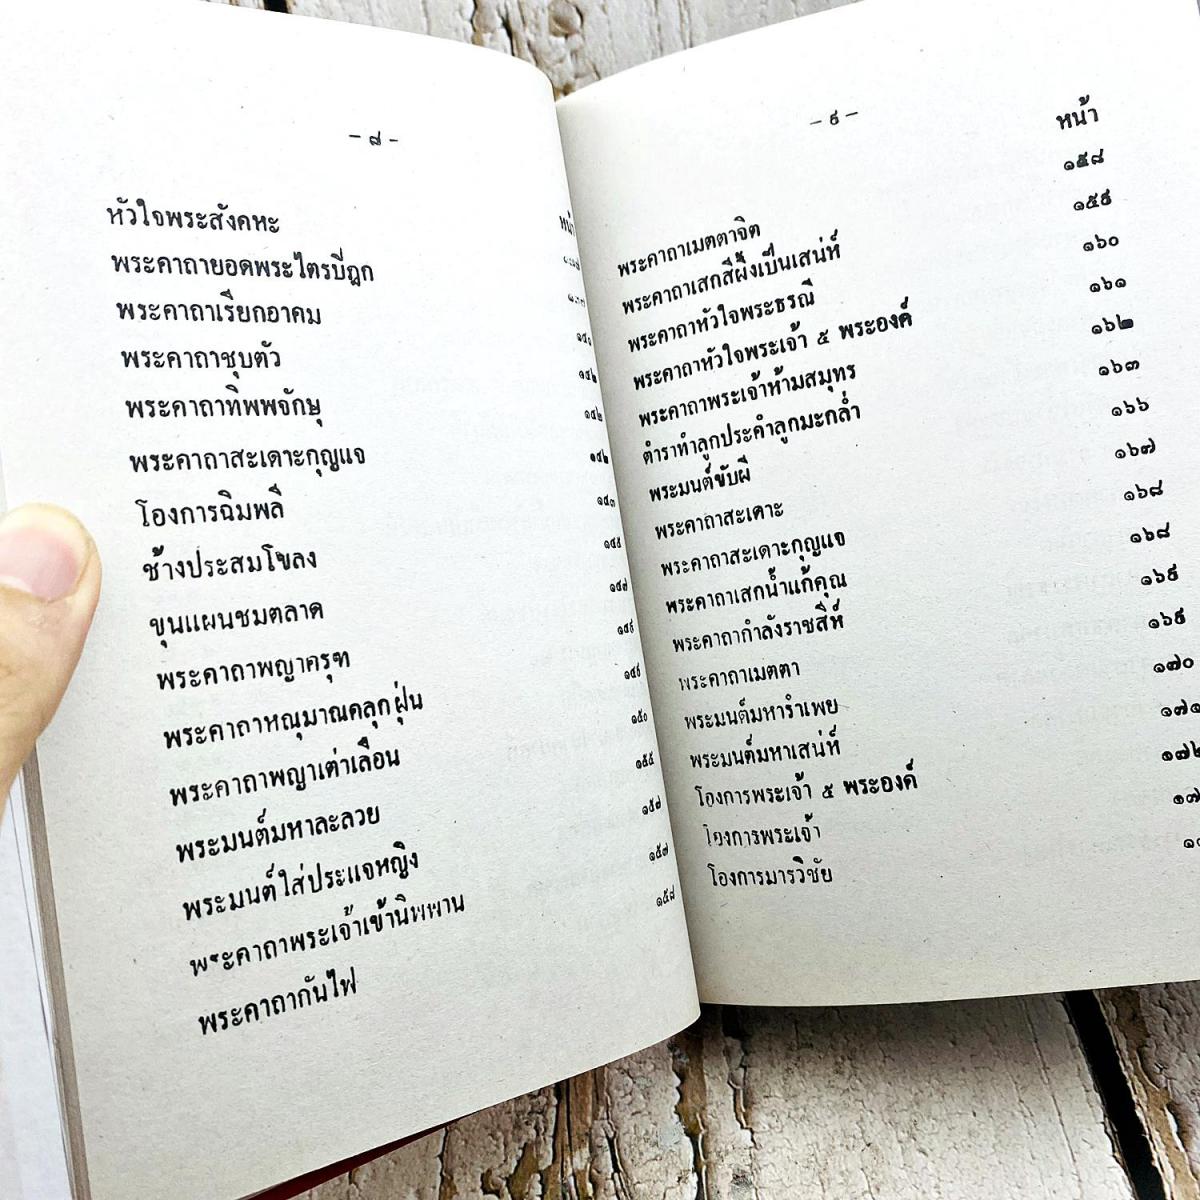 - ๘ -
หน้า
หัวใจพระสังคหะ
พระคาถายอดพระไตรปี่ฎก
พระคาถาเรียกอาคม
พระคาถาชุบตัว ๑๔๒
พระคาถาทิพพจักษุ ๑๔๒
พระคาถาสะเดาะกุญแจ ๑๔๒
โองการฉิมพลี ๑๔๓
ช้างประสมโขลง ๑๔๕
ขุนแผนชมตลาด ๑๔๗
พระคาถาพญาครุฑ ๑๔๙
พระคาถาหณุมาณคลุกฝุ่น ๑๔๙
พระคาถาพญาเต่าเลือน ๑๕๐
พระมนต์มหาละลวย ๑๕๕
พระมนต์ใส่ประแจหญิง ๑๕๗
พระคาถาพระเจ้าเข้านิพพาน ๑๕๗
พระคาถากันไฟ ๑๕๘
- ๙ -
หน้า
พระคาถาเมตตาจิต ๑๕๘
พระคาถาเสกสีผึ้งเป็นเสน่ห์ ๑๕๙
พระคาถาหัวใจพระธรณี ๑๖๐
พระคาถาหัวใจพระเจ้า ๕ พระองค์ ๑๖๑
พระคาถาพระเจ้าห้ามสมุทร ๑๖๒
ตำราทำลูกประคำลูกมะกล่ำ ๑๖๓
พระมนต์ขับผี ๑๖๖
พระคาถาสะเดาะ ๑๖๗
พระคาถาสะเดาะกุญแจ ๑๖๘
พระคาถาเสกน้ำแก้คุณ ๑๖๘
พระคาถากำลังราชสีห์ ๑๖๙
พระคาถาเมตตา ๑๖๙
พระมนต์มหารำเพย ๑๗๐
พระมนต์มหาเสน่ห์ ๑๗๑
โองการพระเจ้า ๕ พระองค์ ๑๗๒
โองการพระเจ้า
โองการมารวิชัย